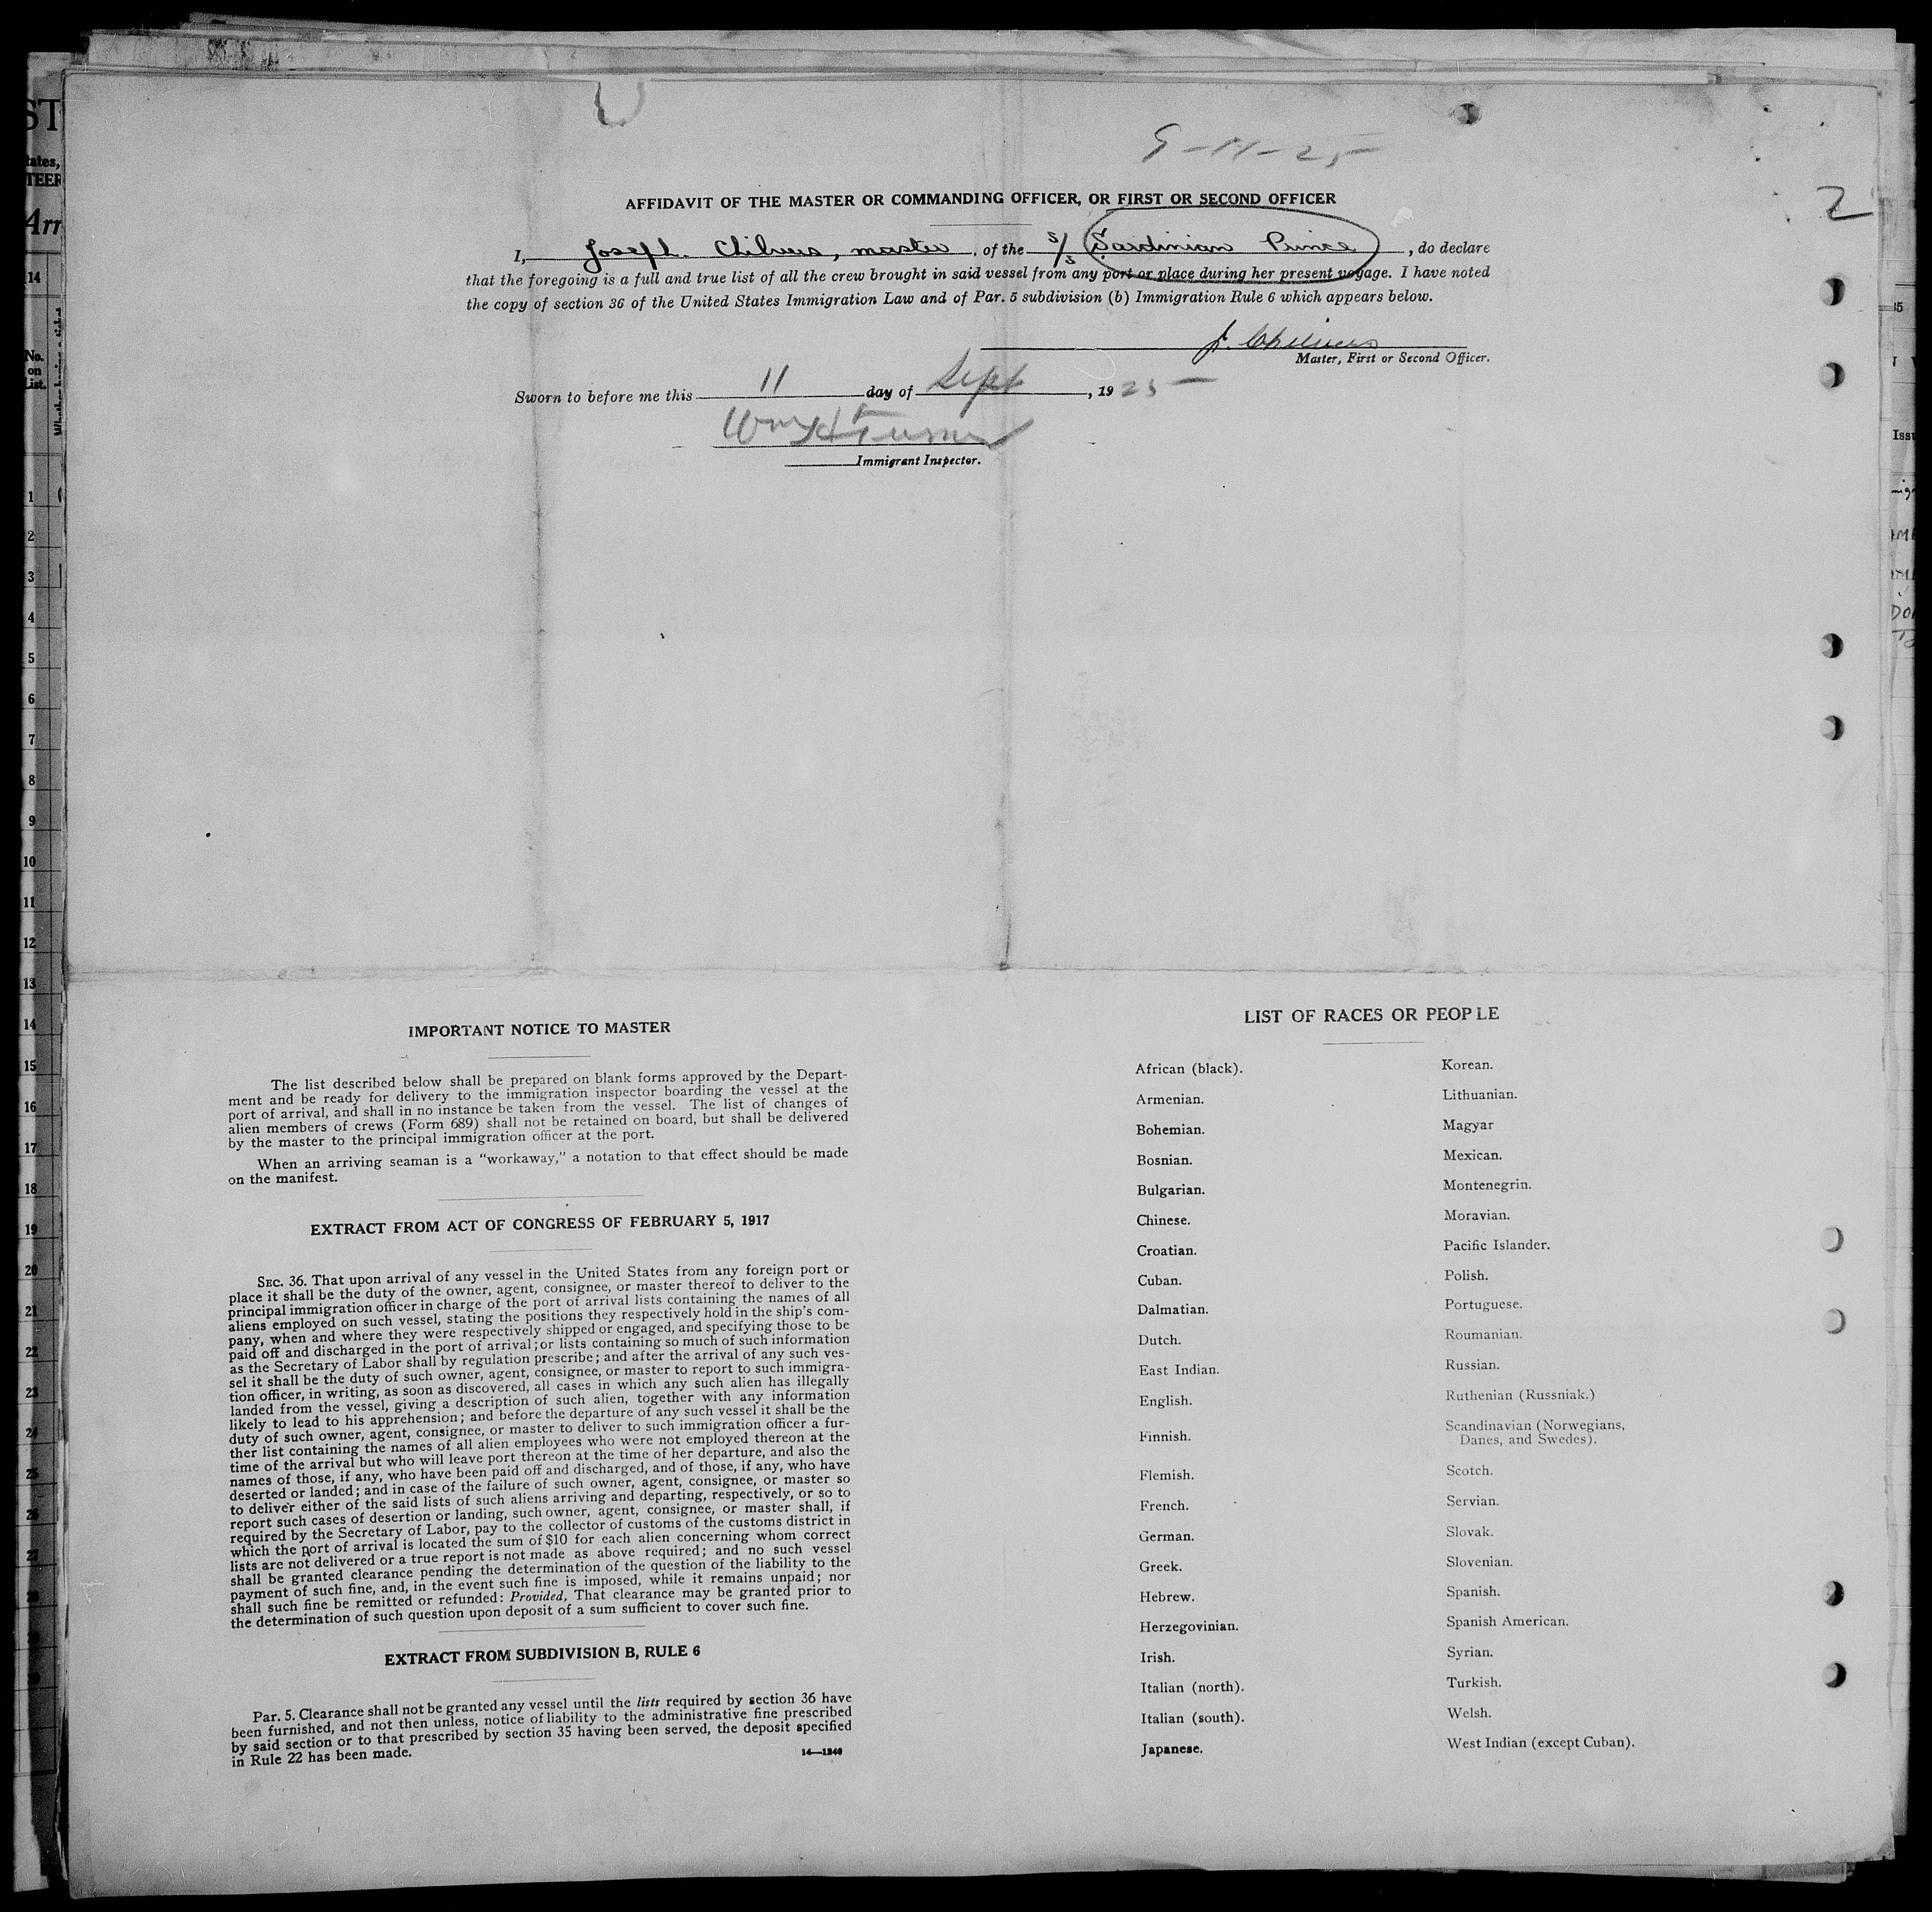 9-11-25
2
AFFIDAVIT OF THE MASTER OR COMMANDING OFFICER, OR FIRST OR SECOND OFFICER
I, Joseph. Chilvers, master, of the S/S Sardinian Prince, do declare
that the foregoing is a full and true list of all the crew brought in said vessel from any port or place during her present voyage. I have noted
the copy of section 36 of the United States Immigration Law and of Par. 5 subdivision (b) Immigration Rule 6 which appears below.
J. Chilvers
Master, First or Second Officer.
Sworn to before me this 11 day of Sept, 1925
Wm H Turner
Immigrant Inspector.
IMPORTANT NOTICE TO MASTER
The list described below shall be prepared on blank forms approved by the Depart-
ment and be ready for delivery to the immigration inspector boarding the vessel at the
port of arrival, and shall in no instance be taken from the vessel. The list of changes of
alien members of crews (Form 689) shall not be retained on board, but shall be delivered
by the master to the principal immigration officer at the port.
When an arriving seaman is a "workaway," a notation to that effect should be made
on the manifest.
EXTRACT FROM ACT OF CONGRESS OF FEBRUARY 5, 1917
SEC. 36. That upon arrival of any vessel in the United States from any foreign port or
place it shall be the duty of the owner, agent, consignee, or master thereof to deliver to the
principal immigration officer in charge of the port of arrival lists containing the names of all
aliens employed on such vessel, stating the positions they respectively hold in the ship's com-
pany, when and where they were respectively shipped or engaged, and specifying those to be
paid off and discharged in the port of arrival; or lists containing so much of such information
as the Secretary of Labor shall by regulation prescribe; and after the arrival of any such ves-
sel it shall be the duty of such owner, agent, consignee, or master to report to such immigra-
tion officer, in writing, as soon as discovered, all cases in which any such alien has illegally
landed from the vessel, giving a description of such alien, together with any information
likely to lead to his apprehension; and before the departure of any such vessel it shall be the
duty of such owner, agent, consignee, or master to deliver to such immigration officer a fur-
ther list containing the names of all alien employees who were not employed thereon at the
time of the arrival but who will leave port thereon at the time of her departure, and also the
names of those, if any, who have been paid off and discharged, and of those, if any, who have
deserted or landed; and in case of the failure of such owner, agent, consignee, or master so
to deliver either of the said lists of such aliens arriving and departing, respectively, or so to
report such cases of desertion or landing, such owner, agent, consignee, or master shall, if
required by the Secretary of Labor, pay to the collector of customs of the customs district in
which the port of arrival is located the sum of $10 for each alien concerning whom correct
lists are not delivered or a true report is not made as above required; and no such vessel
shall be granted clearance pending the determination of the question of the liability to the
payment of such fine, and, in the event such fine is imposed, while it remains unpaid; nor
shall such fine be remitted or refunded: Provided, That clearance may be granted prior to
the determination of such question upon deposit of a sum sufficient to cover such fine.
EXTRACT FROM SUBDIVISION B, RULE 6
Par. 5. Clearance shall not be granted any vessel until the lists required by section 36 have
been furnished, and not then unless, notice of liability to the administrative fine prescribed
by said section or to that prescribed by section 35 having been served, the deposit specified
in Rule 22 has been made.
14—1240
LIST OF RACES OR PEOPLE
African (black).
Armenian.
Bohemian.
Bosnian.
Bulgarian.
Chinese.
Croatian.
Cuban.
Dalmatian.
Dutch.
East Indian.
English.
Finnish.
Flemish.
French.
German.
Greek.
Hebrew.
Herzegovinian.
Irish.
Italian (north).
Italian (south).
Japanese.
Korean.
Lithuanian.
Magyar
Mexican.
Montenegrin.
Moravian.
Pacific Islander.
Polish.
Portuguese.
Roumanian.
Russian.
Ruthenian (Russniak.)
Scandinavian (Norwegians,
Danes, and Swedes).
Scotch.
Servian.
Slovak.
Slovenian.
Spanish.
Spanish American.
Syrian.
Turkish.
Welsh.
West Indian (except Cuban).